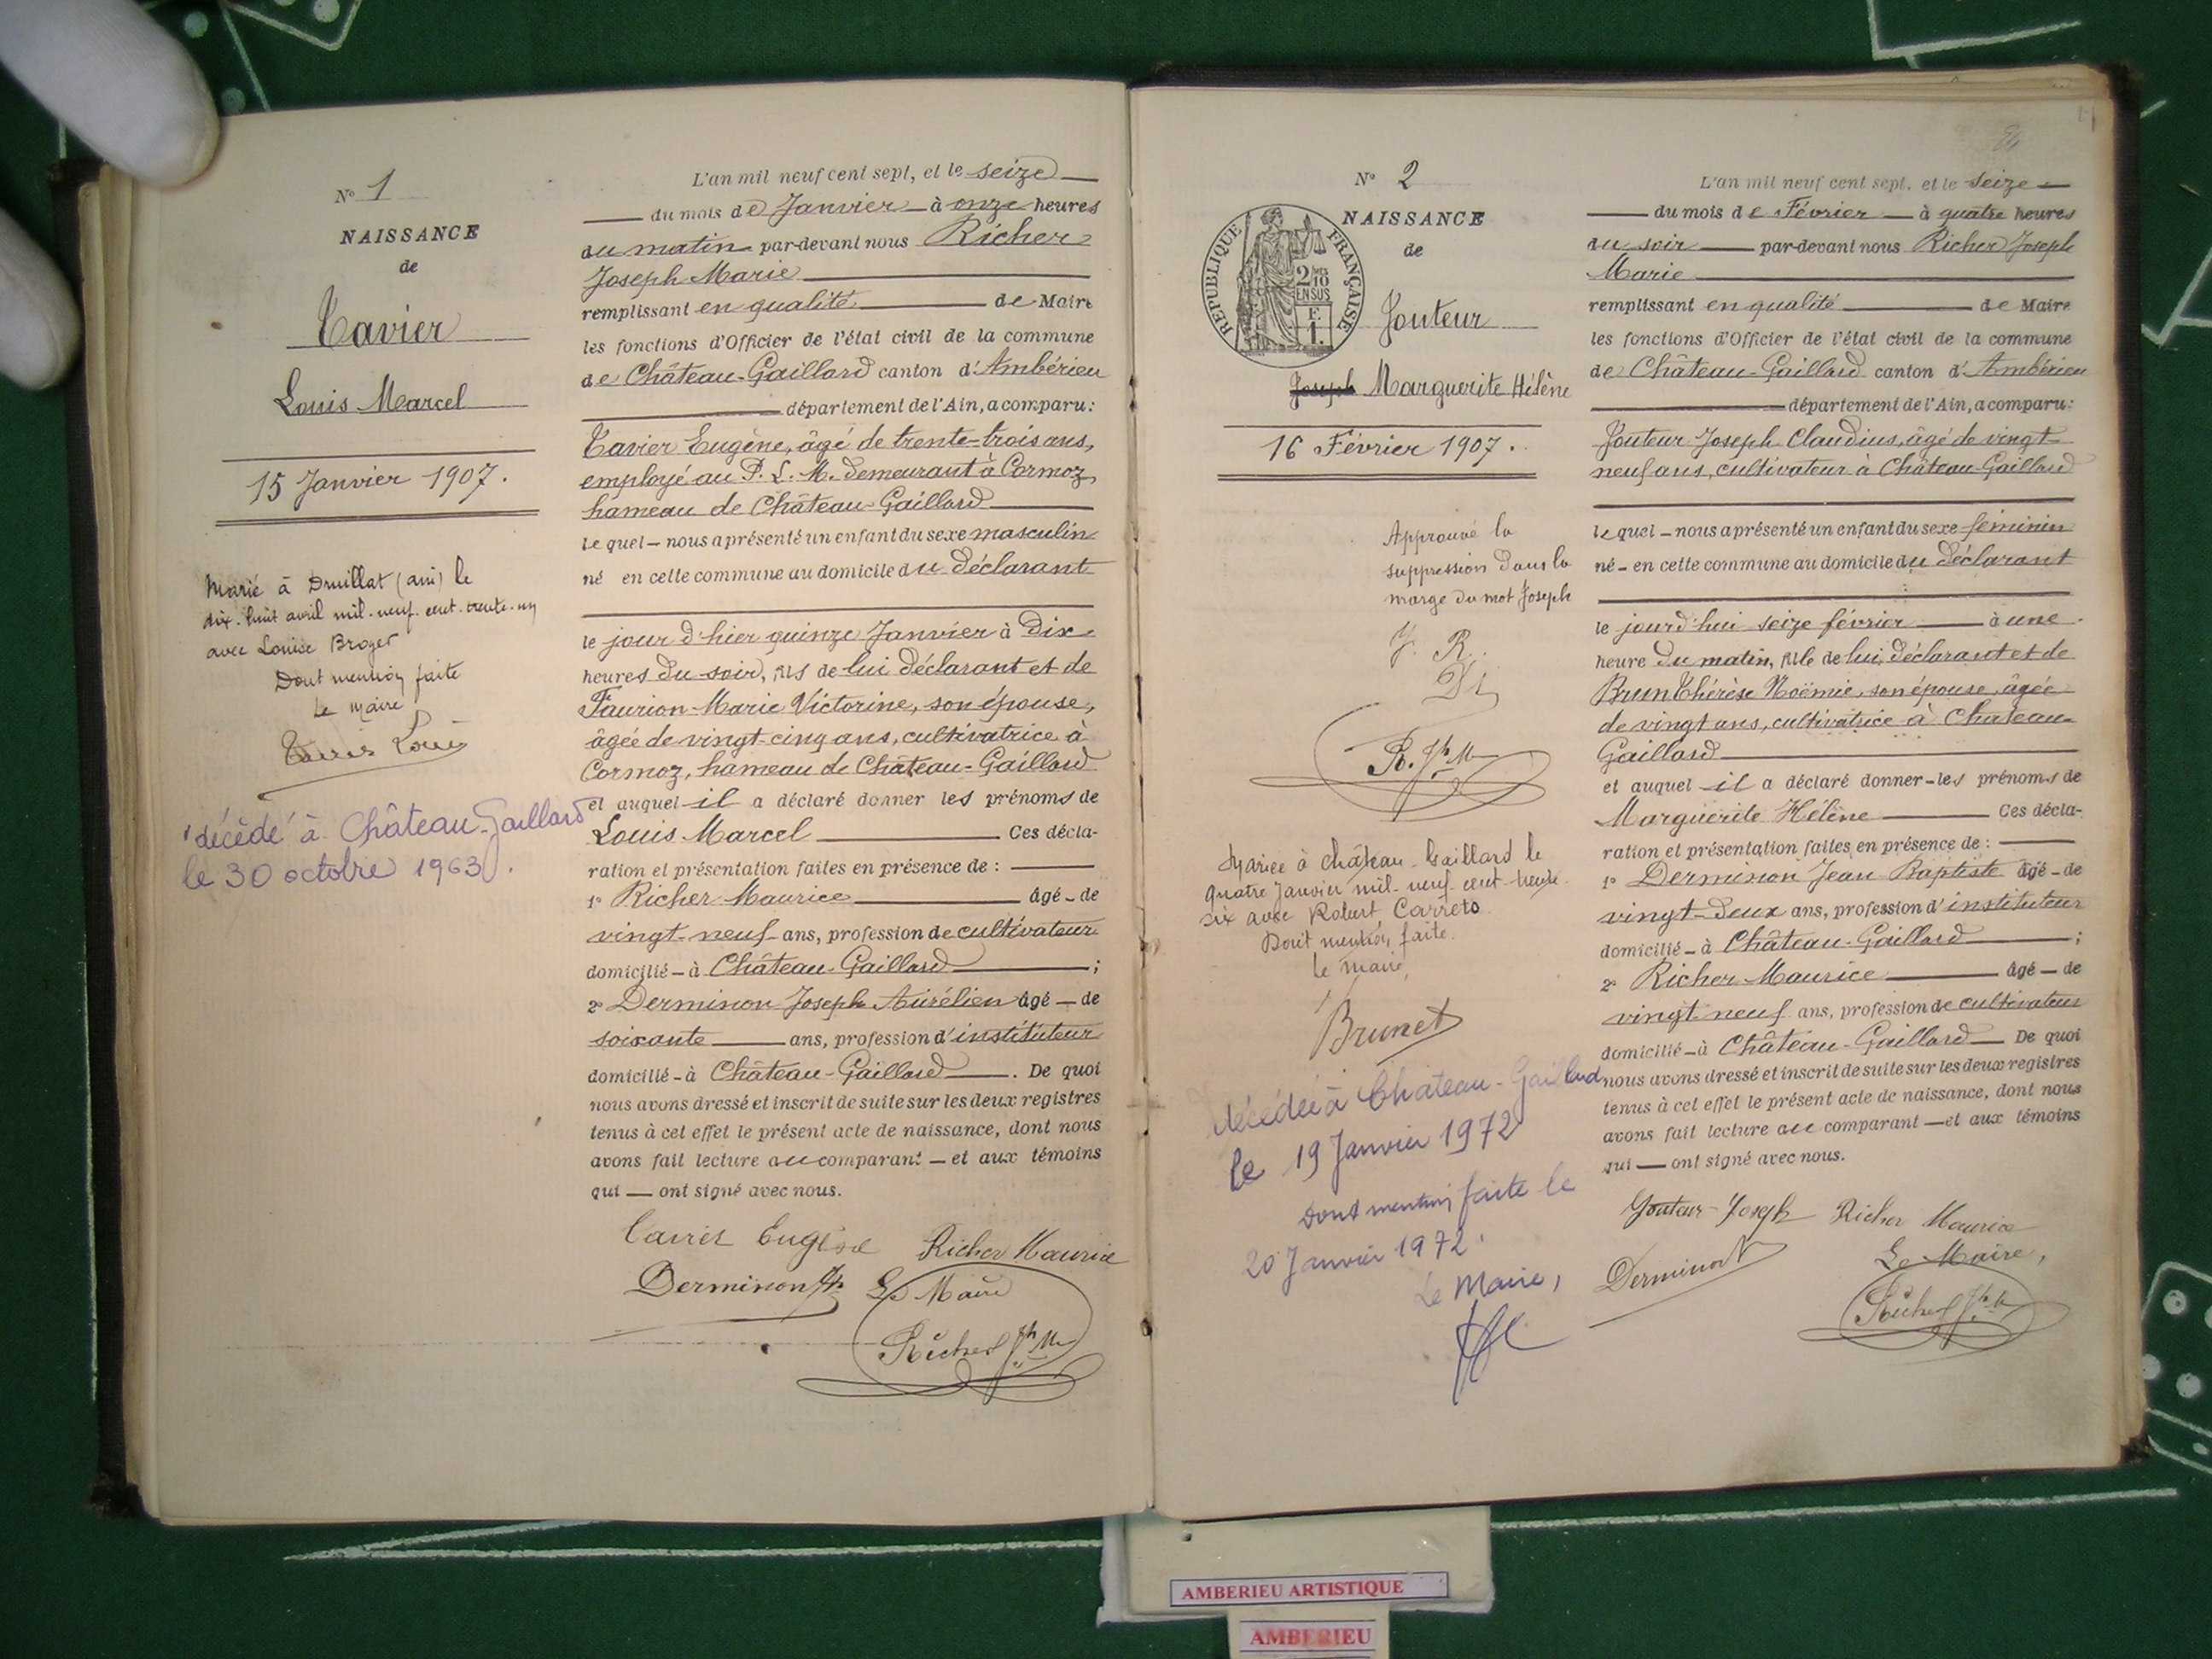 N° 1
NAISSANCE
de
Tavier
Louis Marcel
15 Janvier 1907.
Marié à Druillat (ain) le
dix-huit avril mil-neuf-cent-trente-un
avec Louise Broger
Dont mention faite
Le Maire
décédé à Château-Gaillard
le 30 octobre 1963.
L'an mil neuf cent sept, et le seize
du mois de Janvier à onze heures
du matin par-devant nous Richer
Joseph Marie
remplissant en qualité de Maire
les fonctions d'Officier de l'état civil de la commune
de Château-Gaillard canton d'Ambérieu
département de l'Ain, a comparu:
Tavier Eugène, âgé de trente-trois ans,
employé au P. L. M. demeurant à Cormoz,
hameau de Château-Gaillard
le quel – nous a présenté un enfant du sexe masculin
né en cette commune au domicile du déclarant
le jour d'hier quinze Janvier à dix
heures du soir, fils de lui déclarant et de
Faurion Marie Victorine, son épouse,
âgée de vingt-cinq ans, cultivatrice à
Cormoz, hameau de Château-Gaillard
et auquel il a déclaré donner les prénoms de
Louis Marcel Ces décla-
ration et présentation faites en présence de :
1° Richer Maurice âgé – de
vingt-neuf ans, profession de cultivateur
domicilié – à Château-Gaillard ;
2° Derminon Joseph Aurélien âgé – de
soixante ans, profession d'instituteur
domicilié - à Château-Gaillard . De quoi
nous avons dressé et inscrit de suite sur les deux registres
tenus à cet effet le présent acte de naissance, dont nous
avons fait lecture au comparant – et aux témoins
qui — ont signé avec nous.
Tavier Eugène Richer Maurice
Derminon Le Maire
Richer Jph Mie
N° 2
NAISSANCE
de
REPUBLIQUE FRANÇAISE
2/10
EN SUS
F.
1.
Jouteur
Joseph Marguerite Hélène
16 Février 1907.
Approuvé la
suppression dans la
marge du mot Joseph
J. R.
R. Jph M
Mariée à château-Gaillard le
quatre Janvier mil-neuf-cent-trente-
six avec Robert Carreto
Dont mention faite.
Le Maire,
Brunet
décédée à Château-Gaillard
le 19 Janvier 1972
Dont mention faite le
20 Janvier 1972.
Le Maire,
L'an mil neuf cent sept, et le seize
du mois de Février à quatre heures
du soir par-devant nous Richer Joseph
Marie
remplissant en qualité de Maire
les fonctions d'Officier de l'état civil de la commune
de Château-Gaillard canton d'Ambérieu
département de l'Ain, a comparu:
Jouteur Joseph Claudius, âgé de vingt
neuf ans, cultivateur à Château-Gaillard
le quel – nous a présenté un enfant du sexe féminin
né – en cette commune au domicile du déclarant
le jourd'hui seize février à une
heure du matin, fille de lui, déclarant et de
Brun Thérèse Noëmie, son épouse, âgée
de vingt ans, cultivatrice à Château-
Gaillard
et auquel il a déclaré donner – les prénoms de
Marguerite Hélène Ces décla-
ration et présentation faites en présence de :
1° Derminon Jean Baptiste âgé – de
vingt-deux ans, profession d'instituteur
domicilié – à Château-Gaillard ;
2° Richer Maurice âgé – de
vingt-neuf ans, profession de cultivateur
domicilié – à Château-Gaillard De quoi
nous avons dressé et inscrit de suite sur les deux registres
tenus à cet effet le présent acte de naissance, dont nous
avons fait lecture au comparant — et aux témoins
qui — ont signé avec nous.
Jouteur Joseph Richer Maurice
Derminon Le Maire,
Richer Jph M
AMBERIEU ARTISTIQUE
AMBERIEU